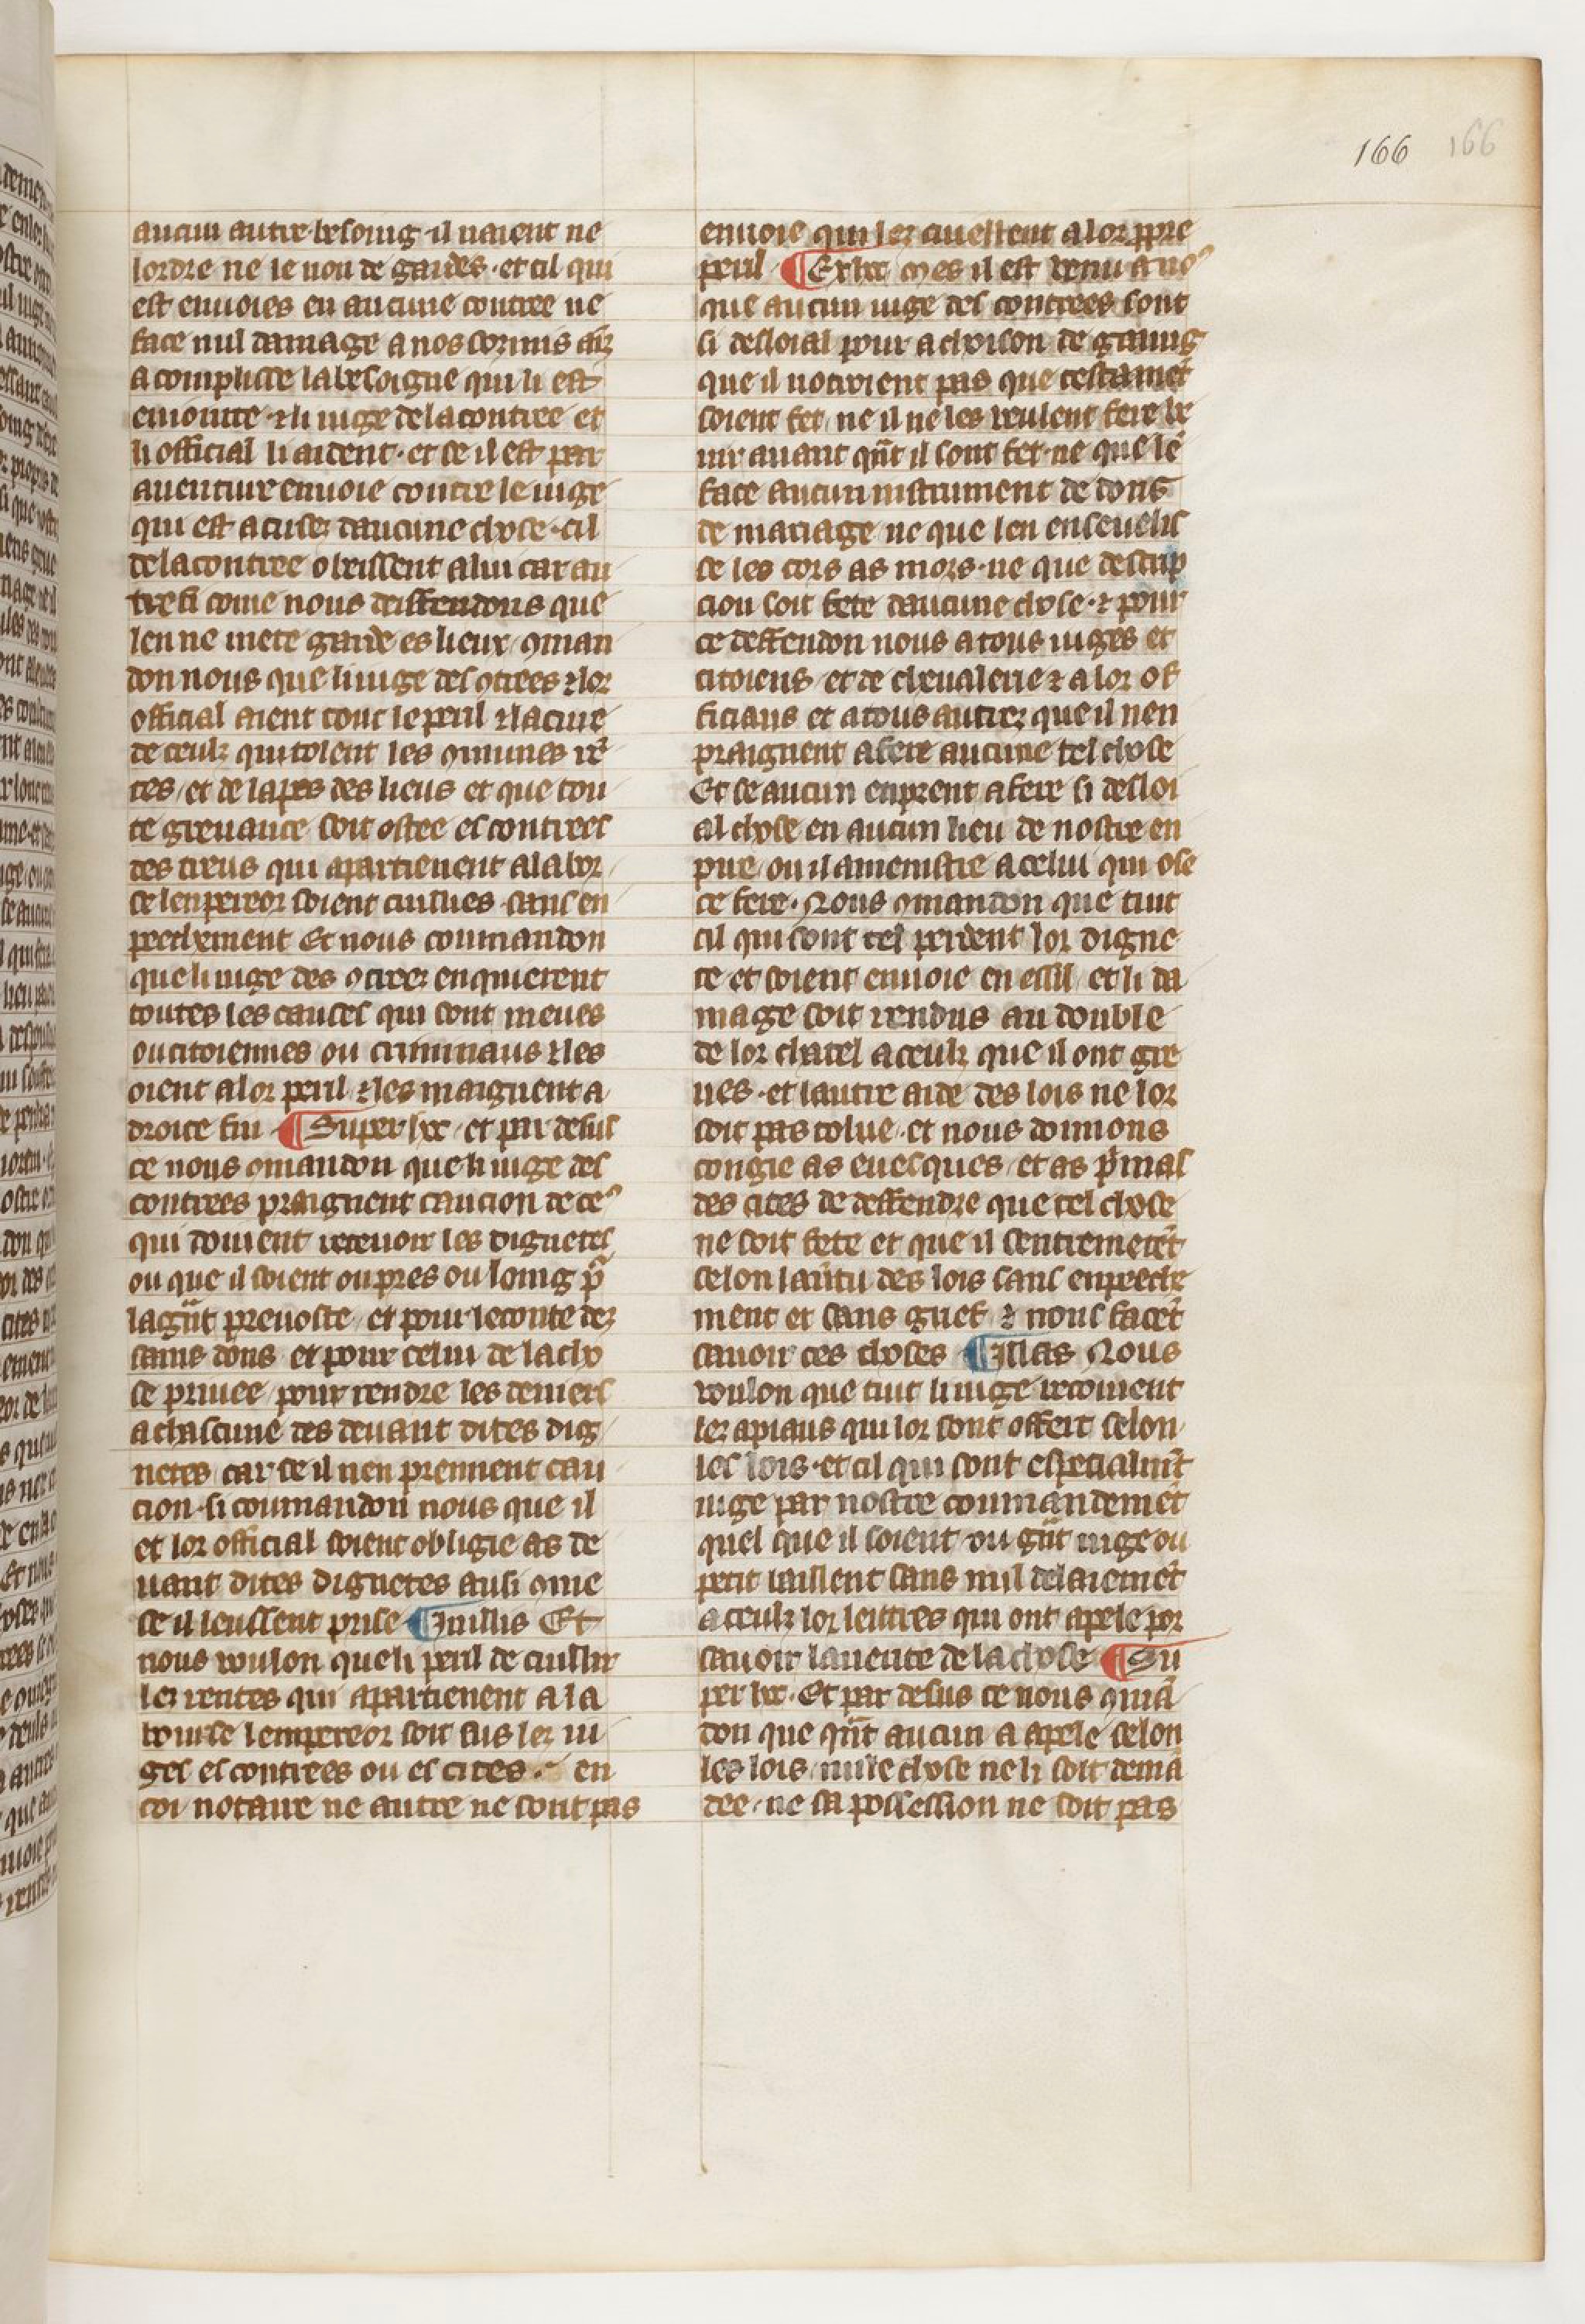 166 166
aucun autre besoing il naient ne
lordre ne le non de gardes · et cil qui
est enuoies en aucune contree ne
face nul damage a nos sozmis aiz
acomplisse la besoigne qui li est
eniointe ⁊ li iuge de la contree et
li official li aident · et se il est par
auenture enuoie contre le iuge
qui est acusez daucune chose · cil
de la contree obeissent a lui car au
tresi come nous deffendons que
len ne mete garde es lieux ꝯman
don nous que li iuge des ꝯtrees ⁊ lor
official aient tout le peril ⁊ la cure
de ceulz qui tolent les ꝯmunes
tes / et de la pes des lieus et que tou
te greuance soit ostee es contrees
des treus qui apartienent a la bor
se lenpereor soient cuillues sanz en
peechement Et nous coumandon
que li iuge des ꝯtrez enquierent
toutes les causes qui sont meues
ou citoiennes ou criminaus ⁊ les
oient a lor peril ⁊ les maignent a
droite fin ¶ Super hec / et par desus
ce nous ꝯmandon que li iuge des
contrees praignent caucion de ceꝰ
qui doiuent receuoir les dignetes
ou que il soient ou pres ou loing p̄
la gn̄t preuoste / et pour le conte dez
sains dons et pour celui de la cho
se priuee / pour rendre les deniers
a chascune des deuant dites dig
netes car se il nen prennent cau
cion · si coumandon nous que il
et lor official soient obligie as de
uant dites dignetes ausi ꝯme
se il leussent prise ¶ In illis Et
nous voulon que li peril de cuillir
lez rentes qui apartienent a la
bourse lempereor soit sus lez iu
ges es contrees ou es cites · en
coi notaire ne autre ne sont pas
enuoie qui lez cuellent a lor ꝓpre
peril ¶ Ex hec mes il est venu a noꝰ
que aucun iuge des contrees sont
si desloial pour achoison de gaaing
que il notroient pas que testamēt
soient fet / ne il ne les veulent fere ve
nir auant qn̄t il sont fet · ne que lē
face aucun instrument de dons
de mariage ne que len enseuelis
se les cors as mors · ne que descrip
cion soit fete daucune chose · ⁊ pour
ce deffendon nous a tous iuges et
citoiens / et de cheualerie ⁊ a lor of
ficiaus et a tous autrez que il nen
praignent a fere aucune tel chose
Et se aucun enprent a fere si desloi
al chose en aucun lieu de nostre en
pire / ou il amenistre a celui qui ose
ce fere · Nous ꝯmandon que tuit
cil qui sont tel perdent lor digne
te et soient enuoie en essil / et li da
mage soit rendus au double
de lor chatel a ceulz que il ont gre
ues · et lautre aide des lois ne lor
soit pas tolue · et nous donnons
congie as euesques / et as p̄mas
des cites de deffendre que tel chose
ne soit fete et que il sentremetēt
selon la des lois sans enpeeche
ment et sans guet ⁊ nous facēt
sauoir ces choses ¶ Illas Nous
voulon que tuit li iuge recoiuent
lez apiaus qui lor sont offert selon
les lois · et cil qui sont especialmt̄
iuge par nostre coumandemēt
quel que il soient ou gn̄t iuge ou
petit laissent sans nul delaiemēt
a ceulz lor leittres qui ont apele por
sauoir la uerite de la chose ¶ Su
per hec · Et par desus ce nous ꝯmā
don que qn̄t aucun a apele selon
les lois / nule chose ne li soit demā
dee / ne sa possession ne soit pas